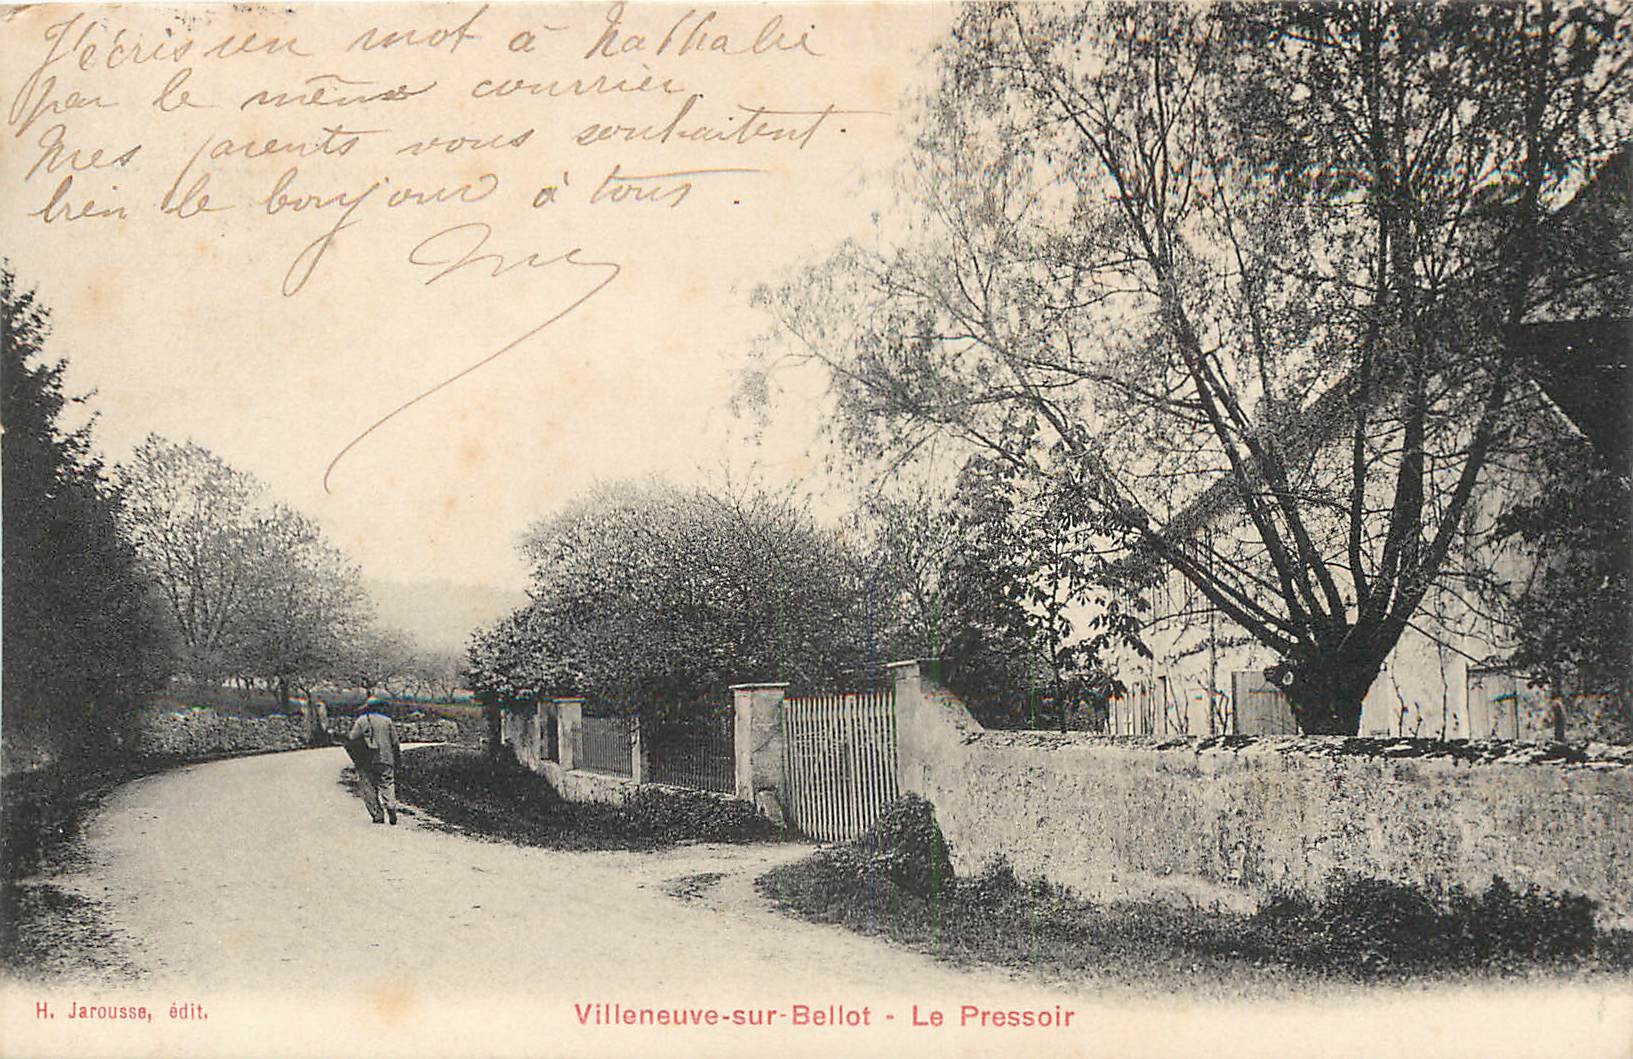 J'écris un mot à Nathalie
par le même courrier.
Mes parents vous souhaitent
bien le bonjour à tous.
H. Jarousse, édit.
Villeneuve-sur-Bellot - Le Pressoir